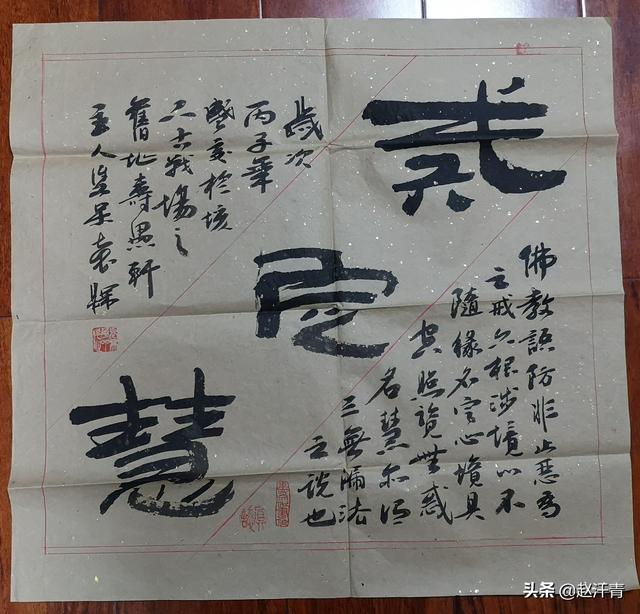 戒
定
慧
佛教語防非止惡為
之戒六根涉境心不
隨緣名定心境具
空照覽無惑
名慧
三無漏法
之說也
歲次
丙子年
盛夏於垓
下古戰場之
舊地壽愚軒
主人
头条 @赵汗青